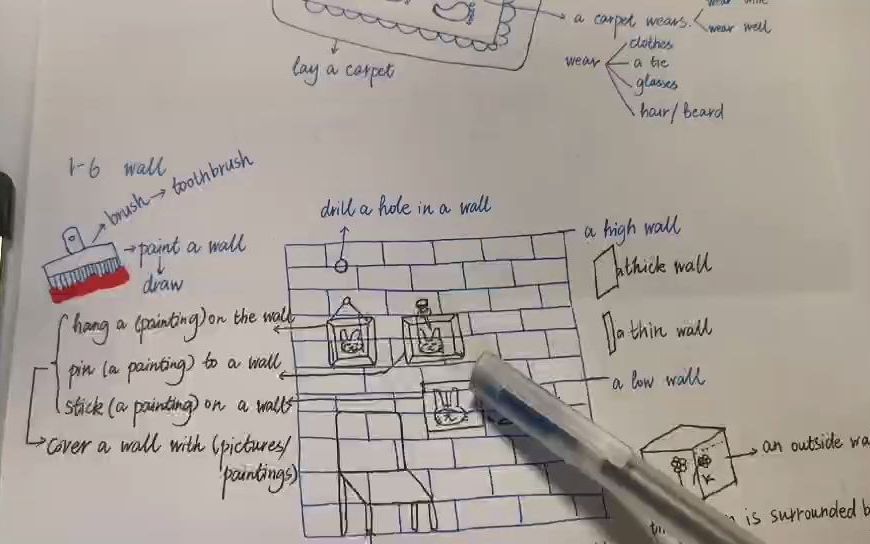 a carpet wears.
wear well
lay a carpet
wear
clothes
a tie
glasses
hair/beard
1-6 wall
brush → toothbrush
→ paint a wall
draw
drill a hole in a wall
a high wall
a thick wall
a thin wall
a low wall
hang a (painting) on the wall
pin (a painting) to a wall
stick (a painting) on a wall
cover a wall with (pictures/
paintings)
an outside wa
is surrounded b